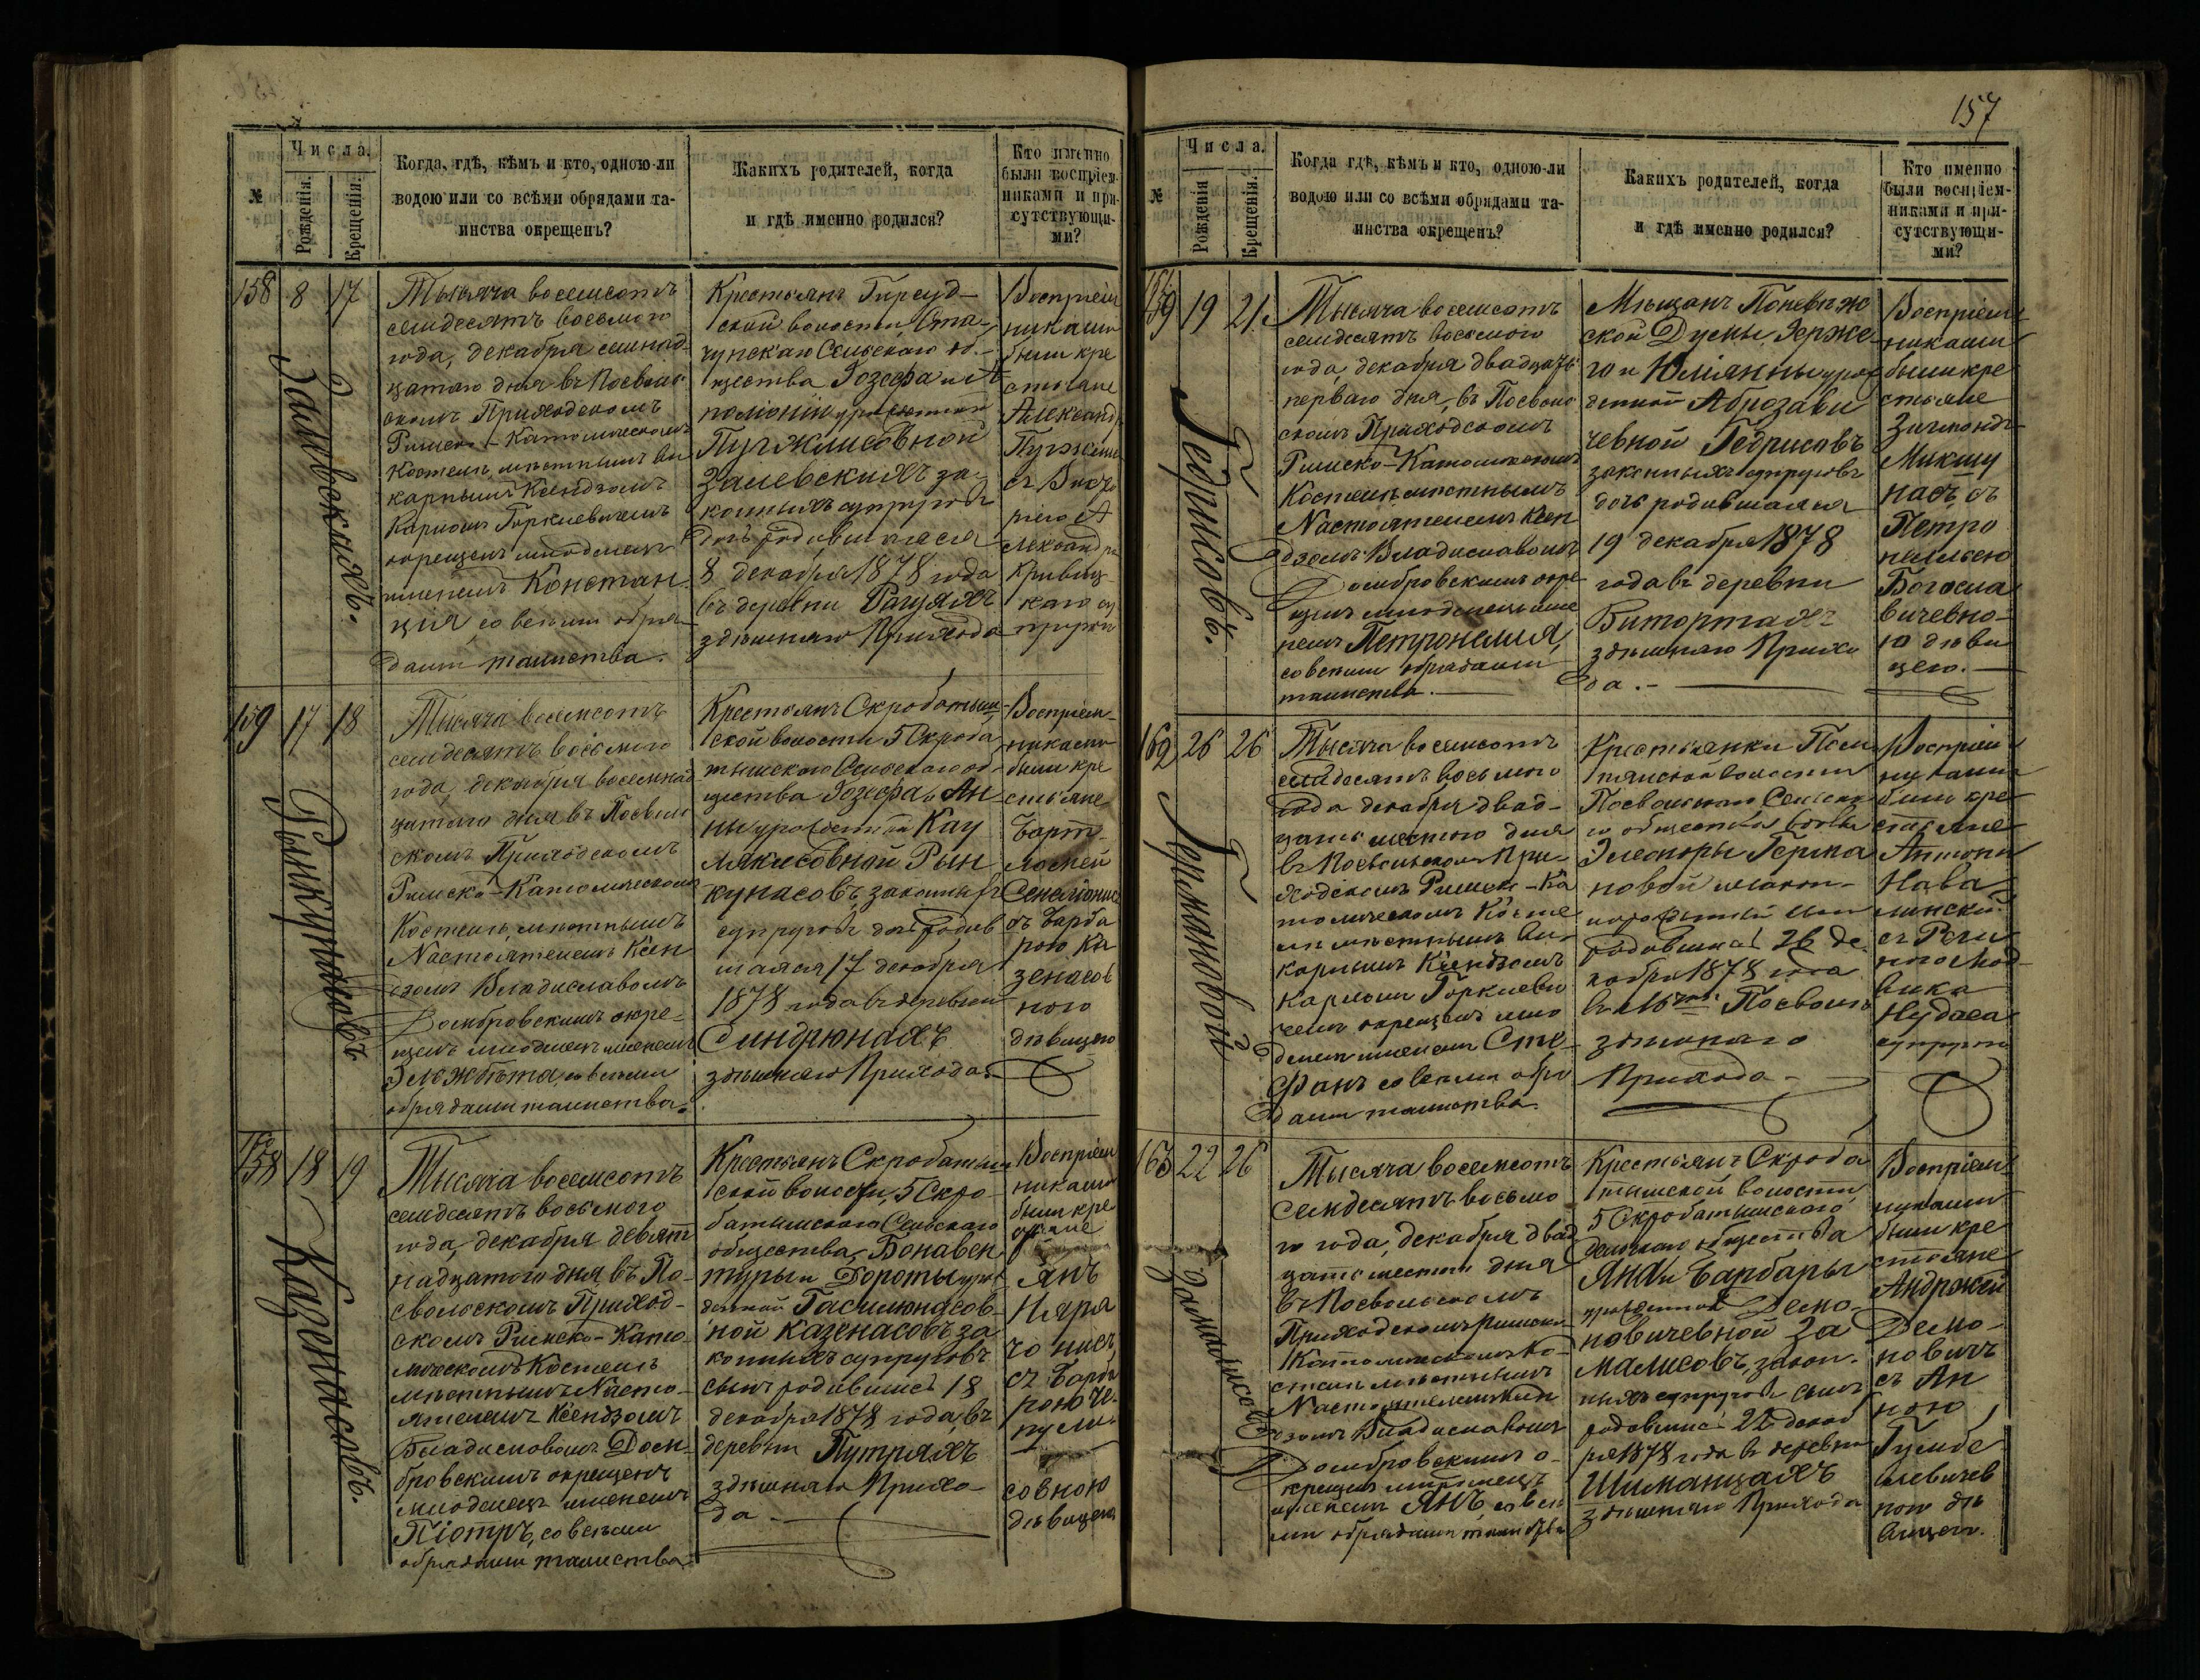 157
№
Числа.
Рожденія.
Крещенія.
Когда, гдѣ, кѣмъ и кто, одною-ли
водою или со всѣми обрядами та-
инства окрещенъ?
Какихъ родителей, когда
и гдѣ именно родился?
Кто именно
были воспріем-
никами и при-
сутствующи-
ми?
158 8 17
Залевскихъ.
Тысяча восемсотъ
семдесятъ восьмого
года, декабря семнад-
цатаго дня въ Посволь-
скомъ Приходскомъ
Римско-Католическомъ
Костелѣ, мѣстнымъ Ви
карнымъ Ксендзомъ
Карломъ Горкевичемъ
окрещенъ младенецъ
именемъ Констан-
ція со всѣми обря-
дами таинства.
Крестьянъ Гирсуд-
ской волости,
Сельскаго об-
щества Іозефа и А
полоніи урожденной
Залевскихъ за-
конныхъ супруговъ
дочь родившаяся
8 декабря 1878 года
въ деревни Рагуляхъ
здѣшняго Прихода
Воспріем
никами
были кре
стьяне
Александръ
159 17 18
Рынкунасовъ.
Тысяча восемсотъ
семдесятъ восьмого
года, декабря восемнад
цатаго дня въ Посволь
скомъ Приходскомъ
Римско-Католическомъ
Костелѣ, мѣстнымъ
Настоятелемъ Ксен
дзомъ Владиславомъ
Домбровскимъ окре-
щенъ младенецъ именемъ
Элжбѣта, со всѣми
обрядами таинства.
Крестьянъ Скробатыш-
ской волости 5 Скроба
тышскаго Сельскаго об-
щества Іозефа и Ан
ны урожденной Кау
лякисовной Рын
кунасовъ, законныхъ
супруговъ дочь родив
шаяся 17 декабря
1878 года въ деревни
Синдрюнахъ
здѣшняго Прихода
Воспріем-
никами
были кре
стьяне
съ Барба
рою Ка
зенасов
ною
дѣвицею
160 18 19
Казенасовъ.
Тысяча восемсотъ
семдесятъ восьмого
года, декабря девят
надцатаго дня въ По-
свольскомъ Приход-
скомъ Римско-Като-
лическомъ Костелѣ
мѣстнымъ Насто-
ятелемъ Ксендзомъ
Владиславомъ Дом-
бровскимъ окрещенъ
младенецъ именемъ
Піотръ, со всѣми
обрядами таинства
Крестьянъ Скробатыш
ской волости, 5 Скро-
батышскаго Сельскаго
общества, Бонавен
туры и Дороты урож
денной Гасилюнасов-
ной Казенасовъ за
конныхъ супруговъ
сынъ родившійся 18
декабря 1878 года, въ
деревни Путряхъ
здѣшняго Прихо-
да
Воспріем
никами
были кре
стьяне
Янъ
съ Барба
рою
совною
дѣвицею
№
Числа.
Рожденія
Крещенія.
Когда гдѣ, кѣмъ и кто, одною-ли
водою или со всѣми обрядами та-
инства окрещенъ?
Какихъ родителей, когда
и гдѣ именно родился?
Кто именно
были воспріем-
никами и при-
сутствующи-
ми?
19 21
Гедрисовъ.
Тысяча восемсотъ
семдесятъ восьмого
года, декабря двадцать
перваго дня, въ Посволь
скомъ Приходскомъ
Римско-Католическомъ
Костелѣ мѣстнымъ
Настоятелемъ Ксен
дзомъ Владиславомъ
Домбровскимъ окре
щенъ младенецъ име
немъ Петронелля,
со всѣми обрядами
таинства.
Мѣщанъ Поневѣж
ской Думы Юрже
го и Юліянны урож
денной Аброзави
чевной Гедрисовъ
законныхъ супруговъ
дочь родившаяся
19 декабря 1878
года въ деревни
Битортахъ
здѣшняго Прихо
да.-
Воспріем
никами
были кре
стьяне
Зигмондъ
Микшу
насъ, съ
Петро
неллею
Богосла
вичевно-
ю дѣви
цею.
162 26 26
Германовой
Тысяча восемсотъ
семдесятъ восьмого
года декабря двад-
цать шестого дня
въ Посвольскомъ При-
ходскомъ Римско-Ка
толическомъ Косте
лѣ мѣстнымъ Ви
карнымъ Ксендзомъ
Карломъ Горкеви
чемъ окрещенъ мла
денецъ именемъ Сте-
фанъ со всѣми обря
дами таинства.
Крестьянки
волости
Посвольскаго Сельска
го общества
Элеоноры Герма
новой
родившійся 26 де
кабря 1878 года
въ Посволѣ
здѣшняго
Прихода
Воспріем
никами
были кре
стьяне
Антони
Нава
линскій
супруги
163 22 26
Замалисовъ
Тысяча восемсотъ
семдесятъ восьмо
го года, декабря двад
цать шестого дня
въ Посвольскомъ
Приходскомъ Римско
Католическомъ Ко-
стелѣ мѣстнымъ
Настоятелемъ Ксен
дзомъ Владиславомъ
Домбровскимъ о-
крещенъ младенецъ
именемъ Янъ, со всѣ
ми обрядами таинства
Крестьянъ Скроба
тышской волости
5 Скробатышскаго
Сельскаго общества
Яна и Барбары
урожденной Демо-
новичевной За
малисовъ, закон-
ныхъ супруговъ сынъ
родившійся 22 декаб
ря 1878 года въ деревни
Шиманцахъ
здѣшняго Прихода
Воспріем
никами
были кре
стьяне
Андржей
Демо-
новичъ
съ Ан
ною
Гумбе
левичев
ною дѣ
вицею.